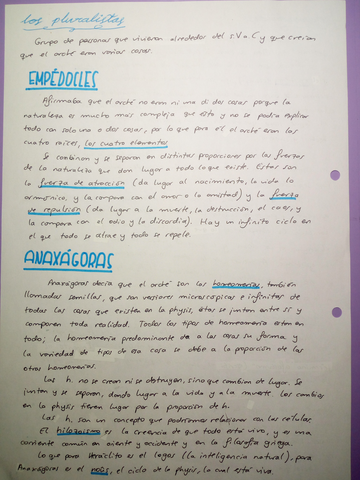 los pluralistas
Grupo de personas que vivieron alrededor del s.V a.C y que creían
que el arché eran varias cosas.
EMPÉDOCLES
Afirmaba que el arché no eran ni una ni dos cosas porque la
naturaleza es mucho más compleja que esto y no se podía explicar
todo con solo una o dos cosas, por lo que para él el arché eran las
cuatro raíces, los cuatro elementos
Se combinan y se separan en distintas proporciones por las fuerzas
de la naturaleza que dan lugar a todo lo que existe. Estas son
la fuerza de atracción (da lugar al nacimiento, la unión, lo
armónico, y la compara con el amor o la amistad) y la fuerza
de repulsión (da lugar a la muerte, la destrucción, el caos, y
la compara con el odio y la discordia). Hay un infinito ciclo en
el que todo se atrae y todo se repele.
ANAXÁGORAS
Anaxágoras decía que el arché son las homeomerías, también
llamadas semillas, que son versiones microscópicas e infinitas de
todas las cosas que existen en la physis, estas se juntan entre sí y
componen toda realidad. Todos los tipos de homeomería están en
todo; la homeomería predominante da a las cosas su forma y
la variedad de tipos de esa cosa se debe a la proporción de las
otras homeomerías.
Las h. no se crean ni se destruyen, sino que cambian de lugar. Se
juntan y se separan, dando lugar a la vida y a la muerte. Los cambios
en la physis tienen lugar por la proporción de h.
Las h. son un concepto que podríamos relacionar con las células.
El hilozoísmo es la creencia de que todo está vivo, y es una
corriente común en oriente y occidente y en la filosofía griega.
Lo que para Heráclito es el logos (la inteligencia natural), para
Anaxágoras es el noûs, el ciclo de la physis, lo cual está vivo.